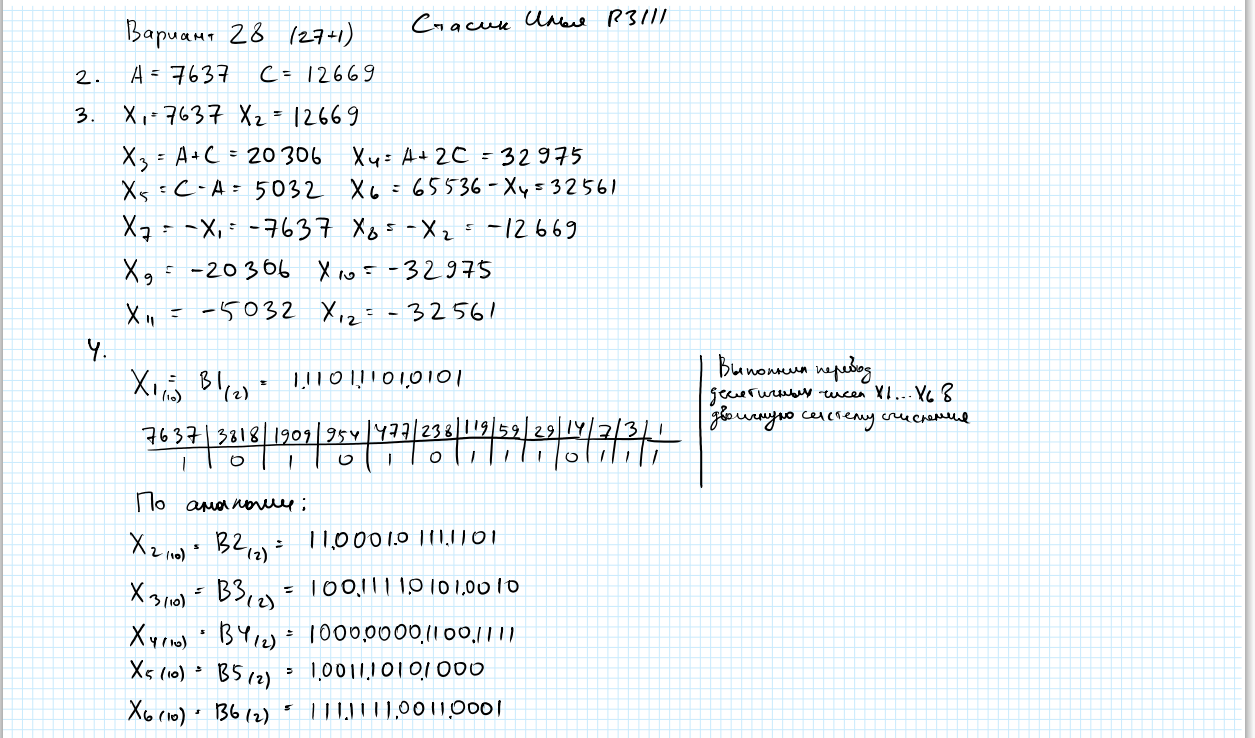 Вариант 28 (27+1) Стасик Илья P3111
2. A = 7637 C = 12669
3. X1 = 7637 X2 = 12669
X3 = A+C = 20306 X4 = A+2C = 32975
X5 = C-A = 5032 X6 = 65536-X4 = 32561
X7 = -X1 = -7637 X8 = -X2 = -12669
X9 = -20306 X10 = -32975
X11 = -5032 X12 = -32561
4.
X1(10) = B1(2) = 1.1101.1101.0101
7637 3818 1909 954 477 238 119 59 29 14 7 3 1
1 0 1 0 1 0 1 1 1 0 1 1 1
Выполним перевод
десятичных чисел X1...X6 в
двоичную систему счисления
По аналогии:
X2(10) = B2(2) = 11.0001.0111.1101
X3(10) = B3(2) = 100.1111.0101.0010
X4(10) = B4(2) = 1000.0000.1100.1111
X5(10) = B5(2) = 1.0011.1010.1000
X6(10) = B6(2) = 111.1111.0011.0001